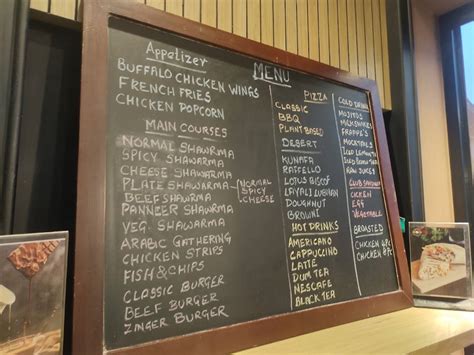 MENU
Appatizer
BUFFALO CHICKEN WINGS
FRENCH FRIES
CHICKEN POPCORN
MAIN COURSES
NORMAL SHAWARMA
SPICY SHAWARMA
CHEESE SHAWARMA
PLATE SHAWARMA
NORMAL
SPICY
CHEESE
BEEF SHAWARMA
PANNEER SHAWARMA
VEG. SHAWARMA
ARABIC GATHERING
CHICKEN STRIPS
FISH & CHIPS
CLASSIC BURGER
BEEF BURGER
ZINGER BURGER
PIZZA
CLASSIC
BBQ
PLANT BASED
DESERT
KUNAFA
RAFFELLO
LOTUS BISCOF
LAYALI LUBNAN
DOUGHNUT
BROWNI
HOT DRINKS
AMERICANO
CAPPUCCINO
LATTE
DUM TEA
NESCAFE
BLACK TEA
COLD DRINKS
MOJITOS
MILKSHAKES
FRAPPE'S
MOCKTAILS
ICED LEMON TEA
RAW JUICES
CLUB SANDWICH
CICKEN
EGG
VEGETABLE
BROASTED
CHICKEN
CHICKEN